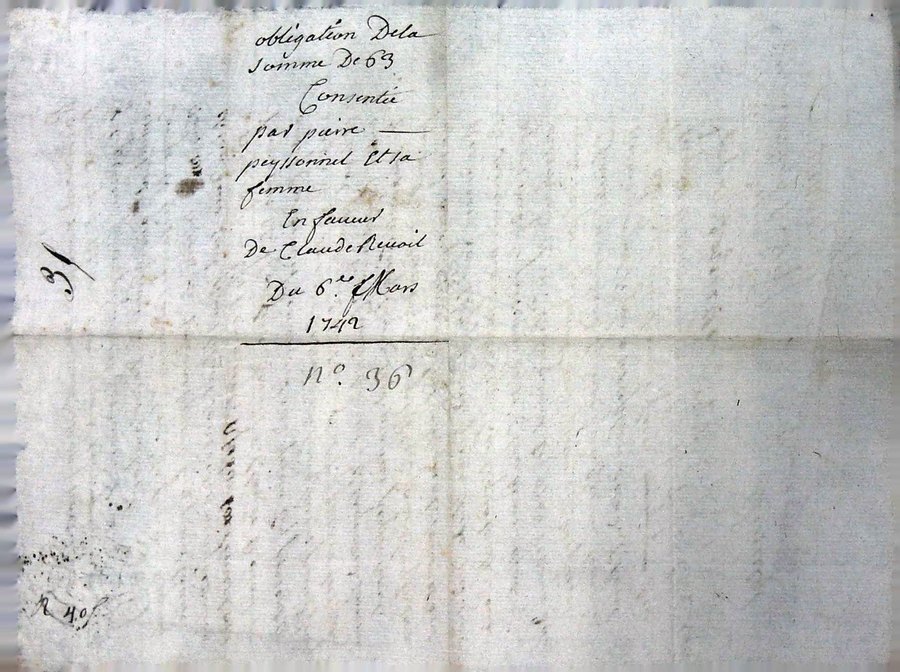 obligation Dela
somme De 63
Consentie
par pierre —
peyssonnel Et sa
femme
En faveur
De Claude Revoil
Du 6.e Mars
1742
n.o 36
31
R 40s